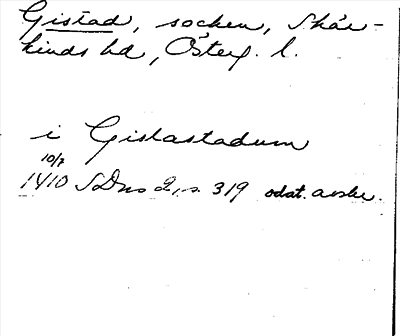 Gistad, socken, Skär-
kinds hd, Österg. l.
i Gislastadum
10/7
1410 SDns 2, s. 319 odat. avskr.